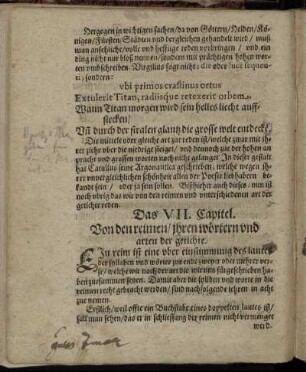 Dergegen in wichtigen sachen/ da von Göttern/ Helden/ Kö-
nigen/ Fürsten/ Städten vnd dergleichen gehandelt wird/ muß
man ansehliche/ volle vnd hefftige reden vorbringen/ vnd ein
ding nicht nur bloß nennen/ sondern mit prächtigen hohen wor-
ten vmbschreiben. Virgilius sagt nicht: die oder luce sequen-
ti; sondern
vbi primos crastinus ortus
Extulerit Titan, radiisque retexerit orbem.
Wann Titan morgen wird sein helles liecht auff-
stecken/
Vñ durch der stralen glantz die grosse welt entdecken.
Die mittele oder gleiche art zue reden ist/ welche zwar mit jh-
rer ziehr vber die niedrige steiget/ vnd dennoch zue der hohen an
pracht vnd grossen worten noch nicht gelanget. In dieser gestalt
hat Catullus seine Argonautica geschrieben; welche wegen jh-
rer vnvergleichlichen schönheit allen der Poesie liebhabern be-
kandt sein/ oder ja sein sollen. Biß hieher auch dieses: nun ist
noch vbrig das wir von den reimen vnd vnterschiedenen art der
getichte reden.
Das VII. Capitel.
Von den reimen/ jhren wörtern vnd
arten der getichte.
EIn reim ist eine vber einstimmung des lautes
der syllaben vnd wörter zue ende zweyer oder mehrer ver-
se/ welche wir nach der art die wir vns fürgeschrieben ha-
ben zuesammen setzen. Damit aber die syllben vnd worte in die
reimen recht gebracht werden/ sind nachfolgende lehren in acht
zue nemen.
Erstlich/ weil offte ein Buchstabe eines doppelten lautes ist/
soll man sehen/ das er in schliessung der reimen nicht vermenget
werde.